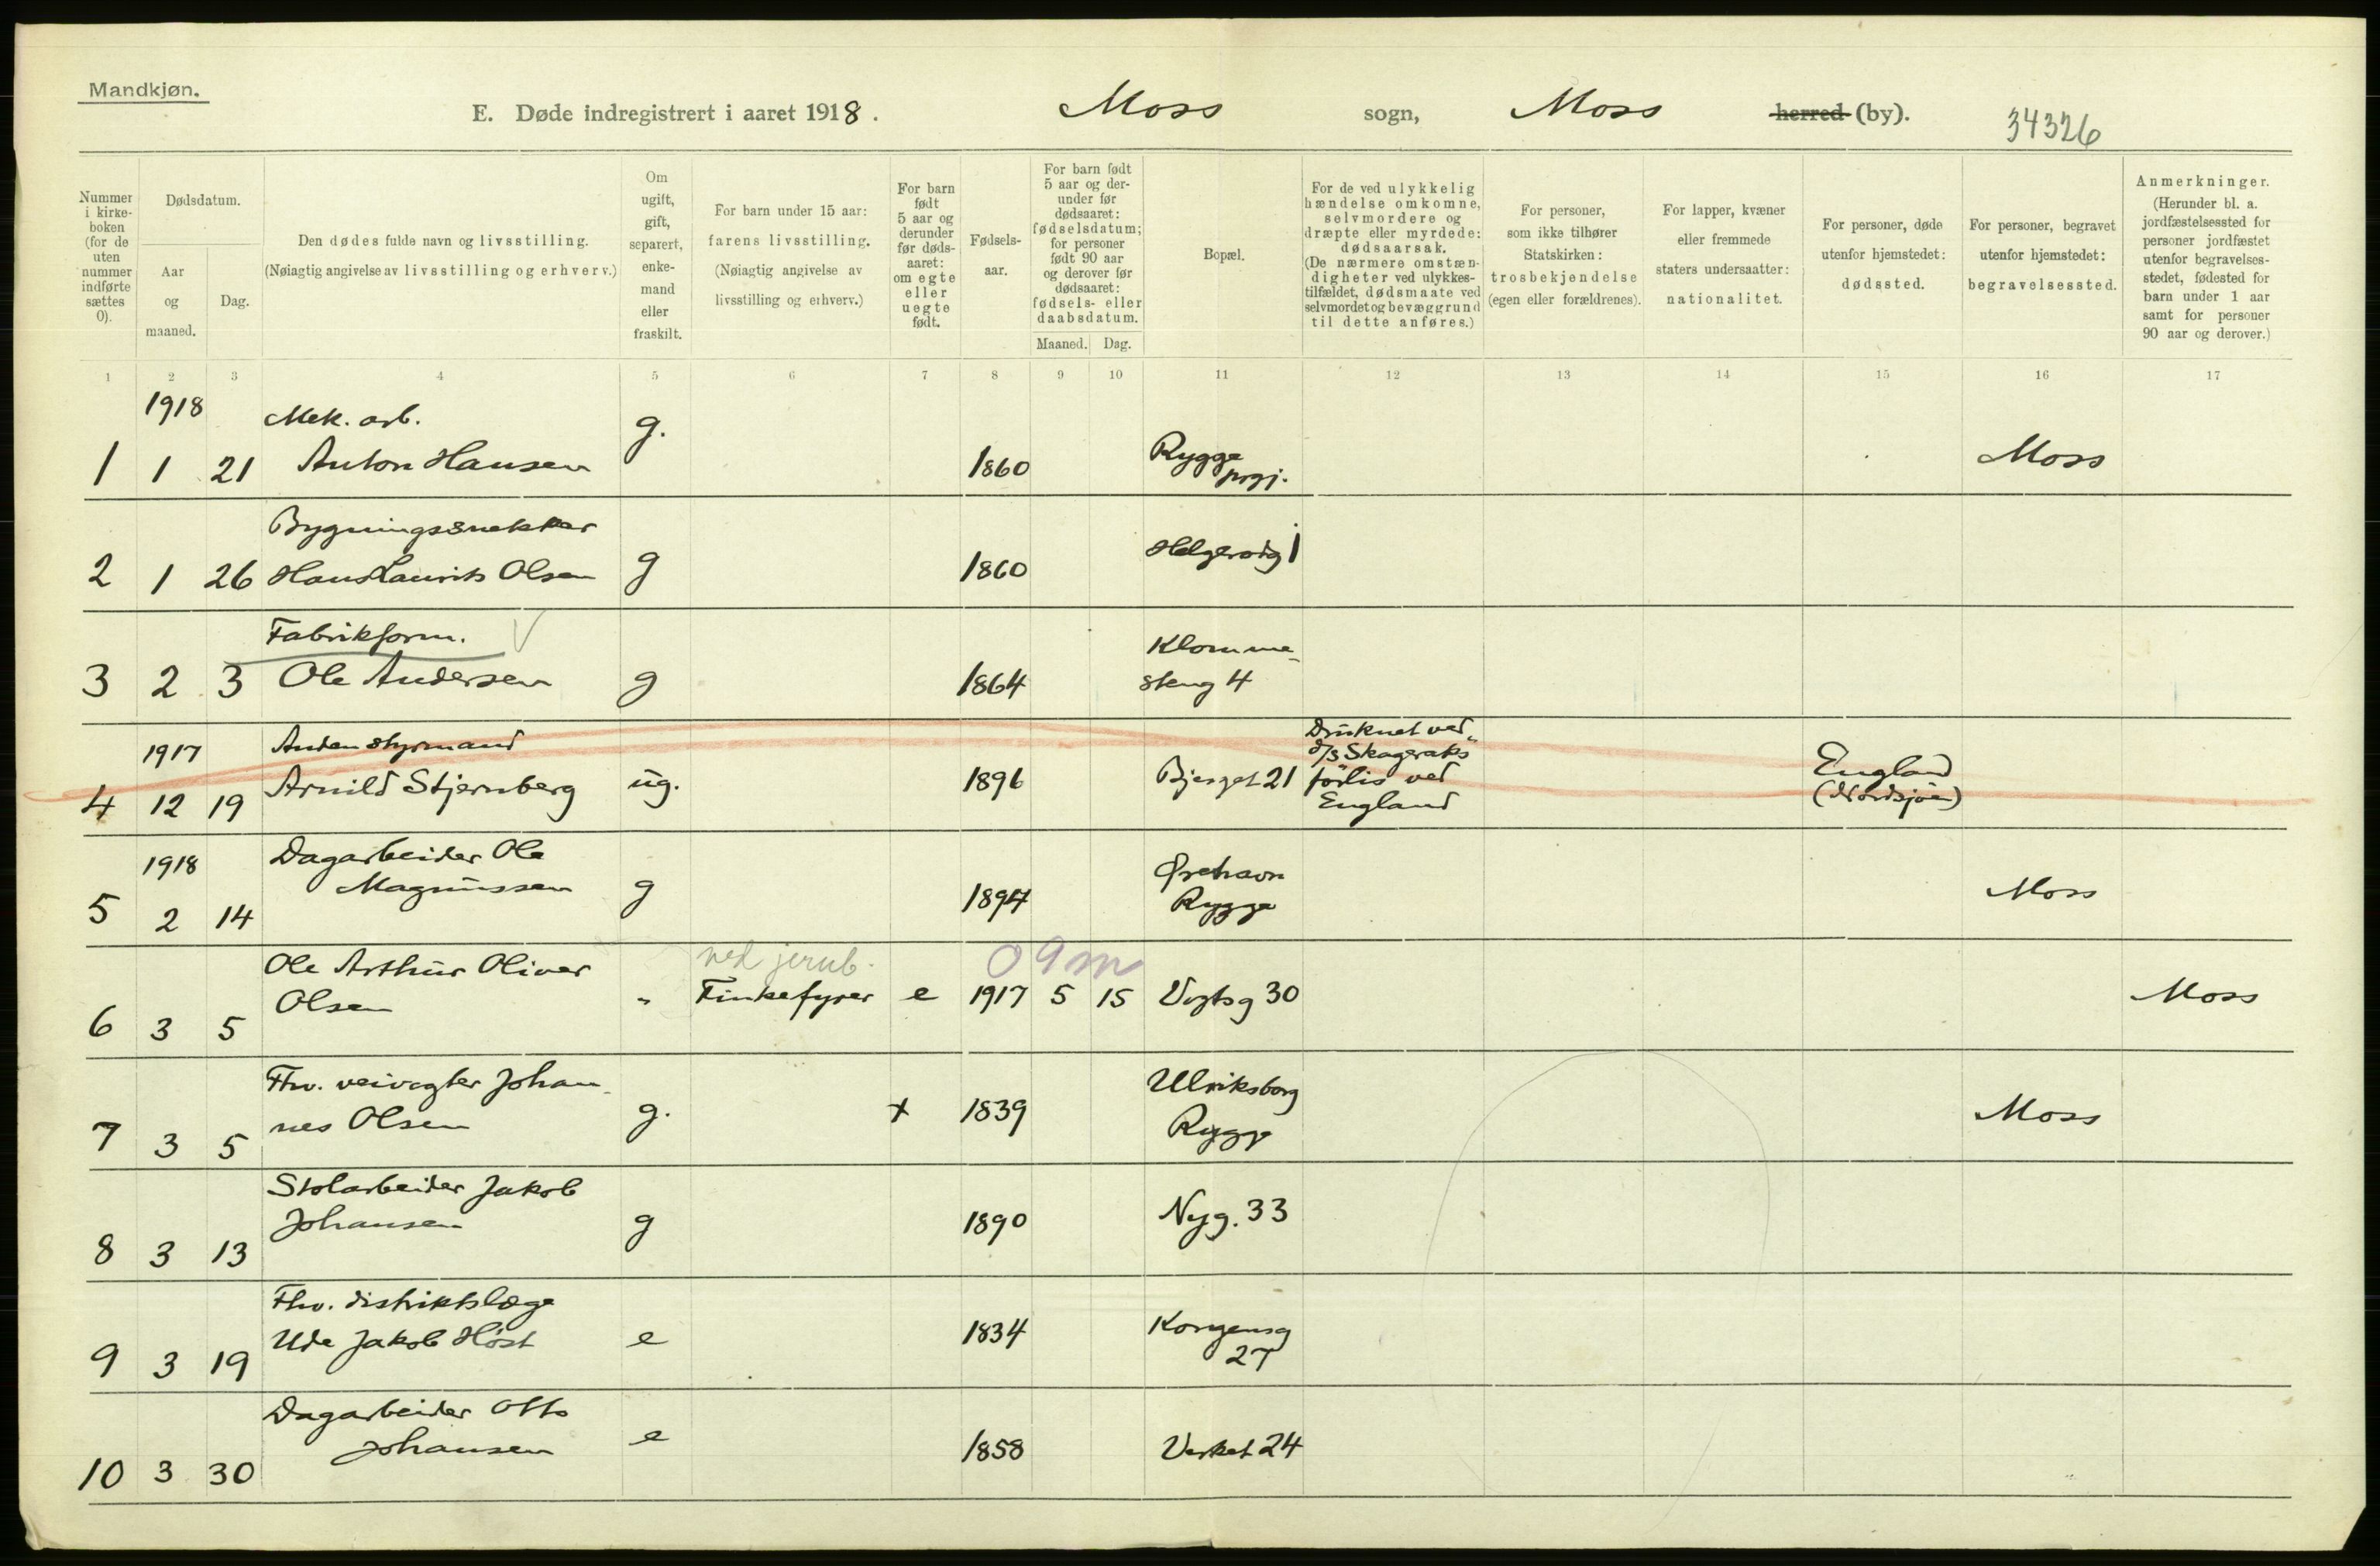 Mandkjøn.
E. Døde indregistrert i aaret 1918. Moss sogn, Moss herred (by). 34326
Nummer i kirkeboken (for de uten nummer indførte sættes 0).
Dødsdatum.
Aar og maaned.
Dag.
Den dødes fulde navn og livsstilling.
(Nøiagtig angivelse av livsstilling og erhverv.)
Om ugift, gift, separert, enkemand eller fraskilt.
For barn under 15 aar:
farens livsstilling.
(Nøiagtig angivelse av
livsstilling og erhverv.)
For barn født 5 aar og derunder før dødsaaret: om egte eller uegte født.
Fødselsaar.
For barn født 5 aar og derunder før dødsaaret: fødselsdatum; for personer født 90 aar og derover før dødsaaret: fødsels- eller daabsdatum.
Maaned. Dag.
Bopæl.
For de ved ulykkelig hændelse omkomne, selvmordere og dræpte eller myrdede: dødsaarsak. (De nærmere omstændigheter ved ulykkestilfældet, dødsmaate ved selvmordet og bevæggrund til dette anføres.)
For personer, som ikke tilhører Statskirken: trosbekjendelse (egen eller forældrenes).
For lapper, kvæner eller fremmede staters undersaatter: nationalitet.
For personer, døde utenfor hjemstedet: dødssted.
For personer, begravet utenfor hjemstedet: begravelsessted.
Anmerkninger. (Herunder bl. a. jordfæstelsessted for personer jordfæstet utenfor begravelsesstedet, fødested for barn under 1 aar samt for personer 90 aar og derover.)
1 2 3 4 5 6 7 8 9 10 11 12 13 14 15 16 17
1918 Mek. arb. g.
1 1 21 Anton Hansen 1860 Rygge prgj. Moss
Bygningssnekker
2 1 26 Hans Laurits Olsen g 1860 Helgerødg 1
Fabrikform. Klomme-
3 2 3 Ole Andersen g 1864 steng 4
1917 Anden styrmand Druknet ved
4 12 19 Arnild Stjernberg ug. 1896 Bjerget 21 d/s "Skageraks" forlis ved England England (Nordsjøen)
1918 Dagarbeider Ole Ørehavn
5 2 14 Magnussen g 1894 Rygge Moss
Ole Arthur Oliver ved jernb. 0 9 m
6 3 5 Olsen " Finkefyrer e 1917 5 15 Vogtsg 30 Moss
Fhv. veivogter Johan- Ulriksborg
7 3 5 nes Olsen g. + 1839 Rygge Moss
Stolarbeider Jakob
8 3 13 Johansen g 1890 Nyg. 33
Fhv. distriktslæge
9 3 19 Ude Jakob Høst e 1834 Kongensg 27
Dagarbeider Otto
10 3 30 Johansen e 1858 Verket 24